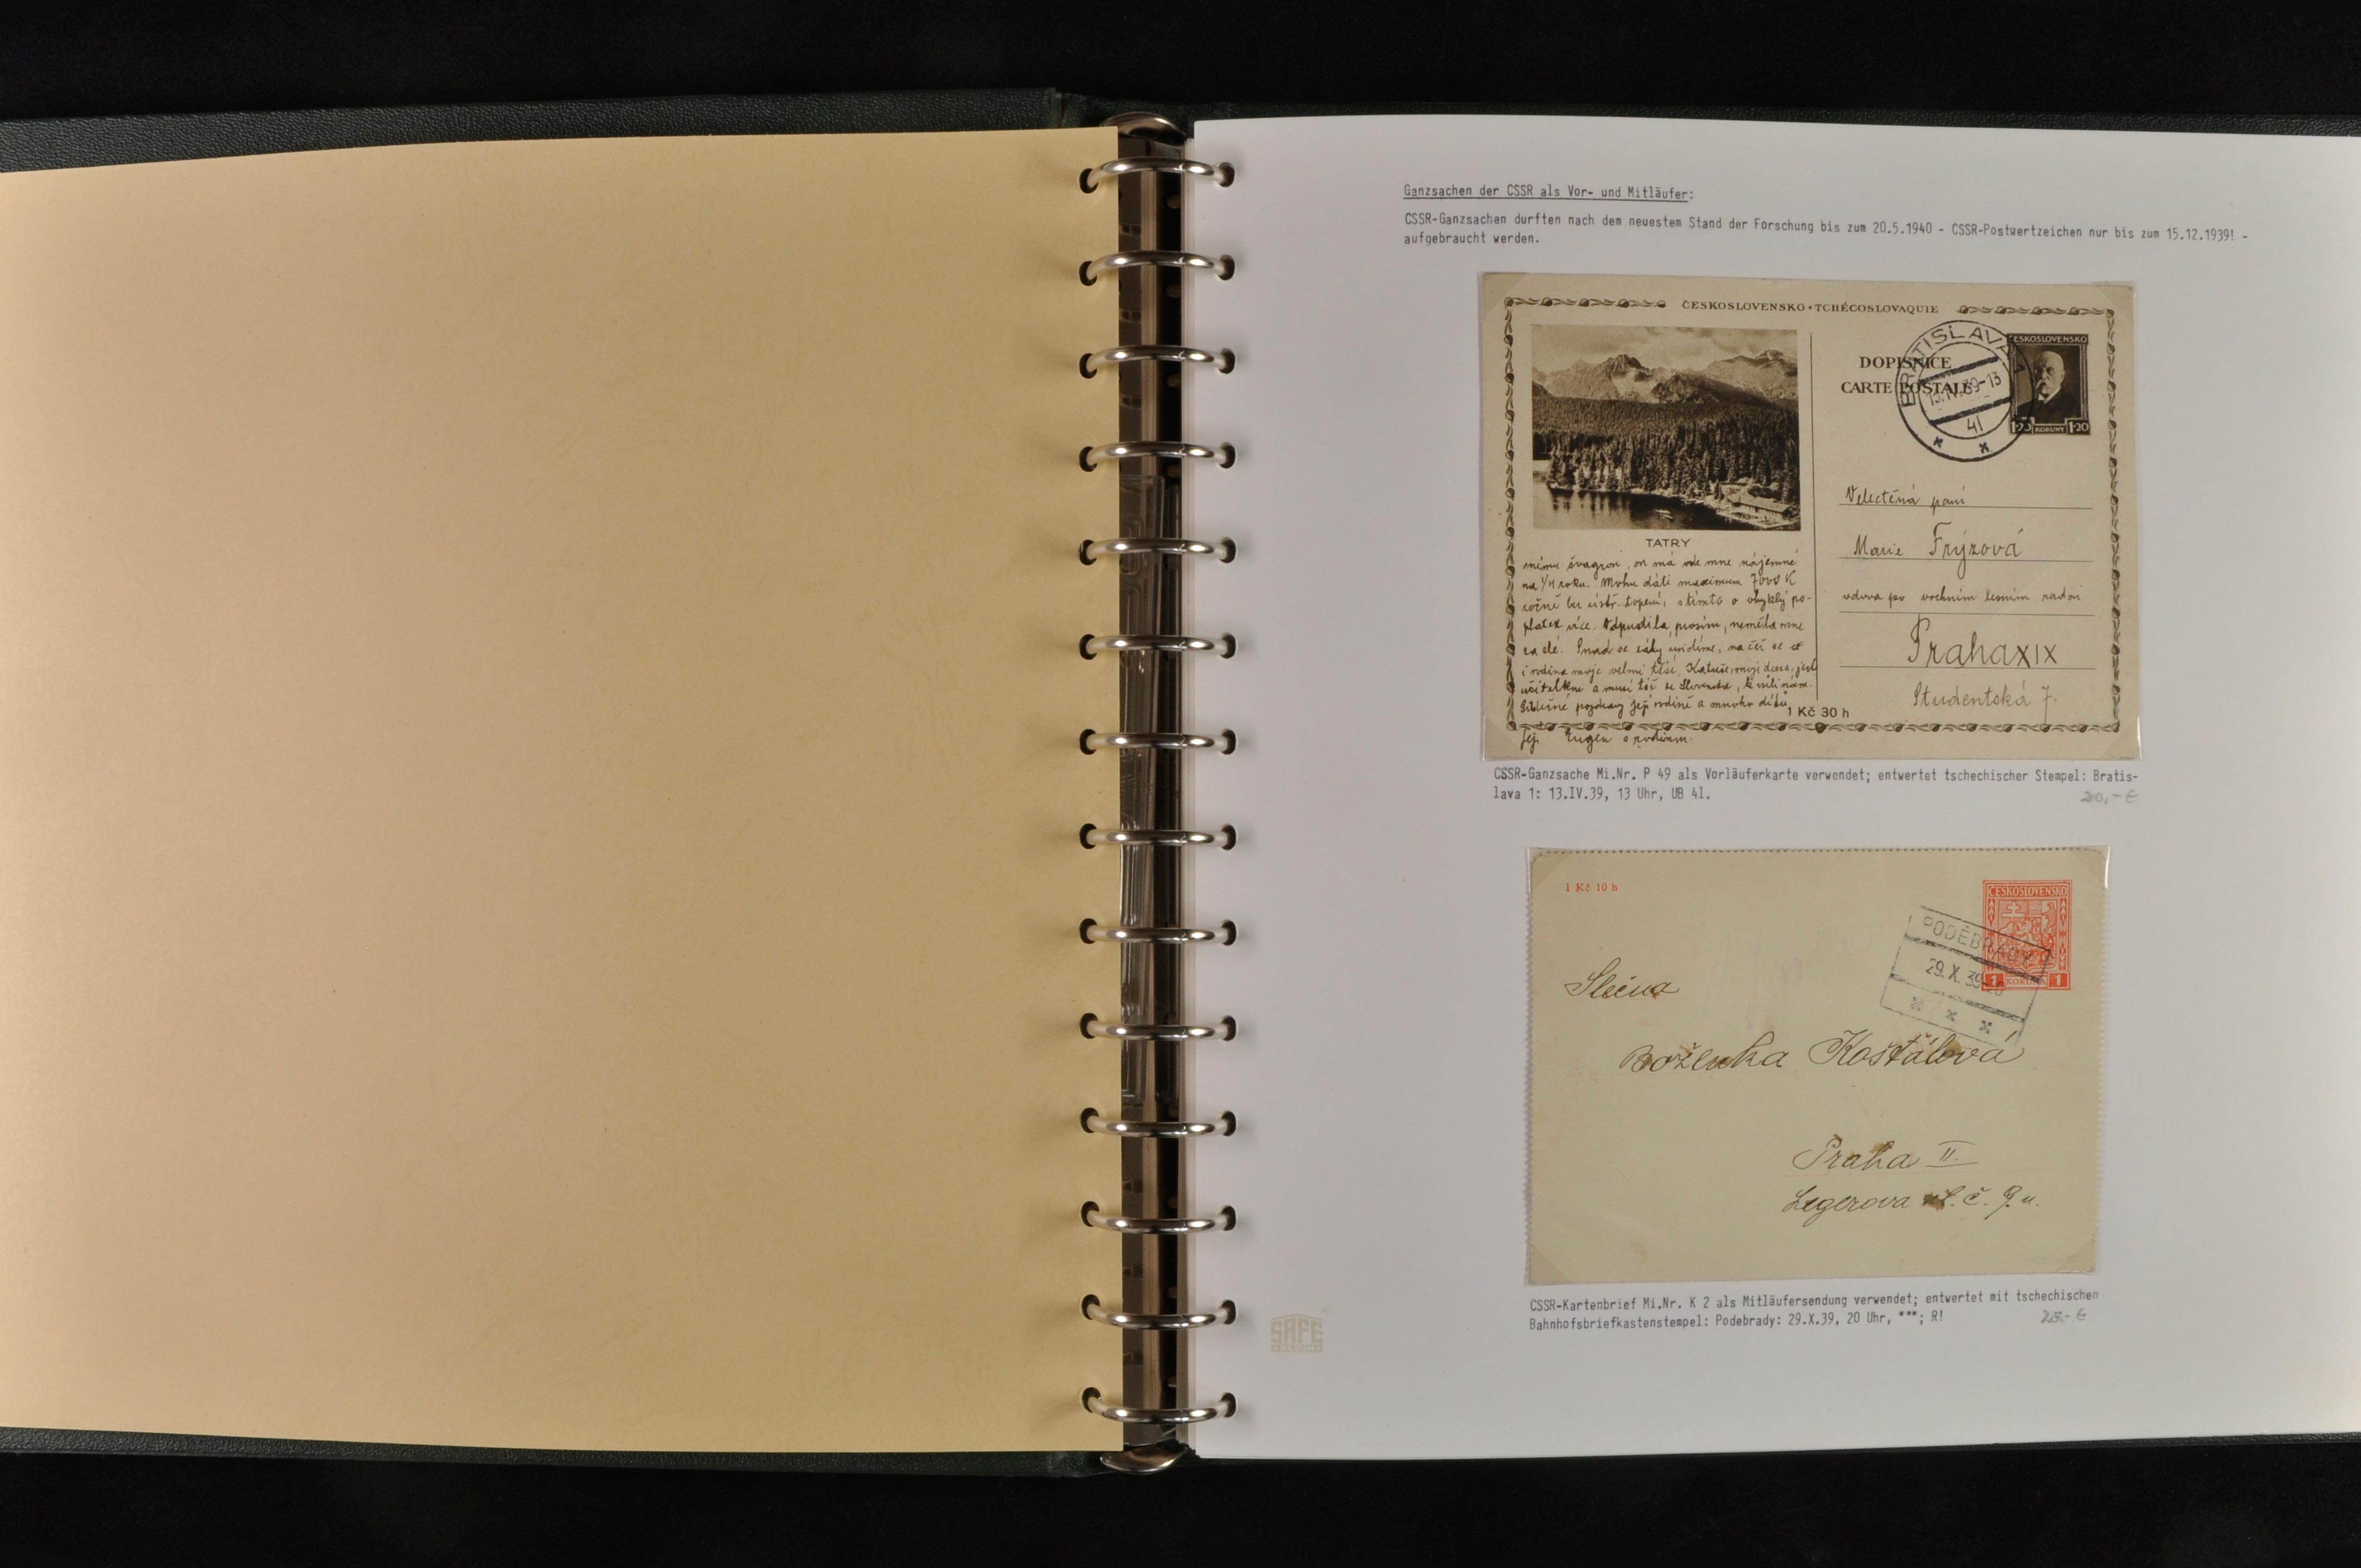 Ganzsachen der CSSR als Vor- und Mitläufer:
CSSR-Ganzsachen durften nach dem neuestem Stand der Forschung bis zum 20.5.1940 - CSSR-Postwertzeichen nur bis zum 15.12.1939! -
aufgebraucht werden.
ČESKOSLOVENSKO • TCHÉCOSLOVAQUIE
DOPISNICE
CARTE POSTALE
BRATISLAVA 1
13.IV.39-13
41
ČESKOSLOVENSKO
1·20 KORUNY 1·20
TATRY
Velectěná paní
Marie Frýzová
vdova po vrchním lesním radovi
Praha XIX
Studentská 7.
mému švagrovi, on má ode mne nájemné
na 1/4 roku. Mohu dáti maximum 7000 K
ročně bez ústř. topení, s tímto o obyklý po-
platek více. Odpustila, prosím, neměla mne
za zlé. Snad se záhy uvidíme, na čež se
i rodina moje velmi těší. Katuše, moje dcera, jest
učitelkou a musí též se Slovenska,
Srdečné pozdravy její rodině a mnoho díků
Její Eugen s rodinou.
1 Kč 30 h
CSSR-Ganzsache Mi.Nr. P 49 als Vorläuferkarte verwendet; entwertet tschechischer Stempel: Bratis-
lava 1: 13.IV.39, 13 Uhr, UB 41.
20,- €
1 Kč 10 h
ČESKOSLOVENSKO
1 KORUNA 1
PODĚBRADY
29.X.39-20
Slečna
Boženka Košťálová
Praha II.
Legerova ul. č. 9.
CSSR-Kartenbrief Mi.Nr. K 2 als Mitläufersendung verwendet; entwertet mit tschechischen
Bahnhofsbriefkastenstempel: Podebrady: 29.X.39, 20 Uhr, ***; R!
SAFE
ALBUM